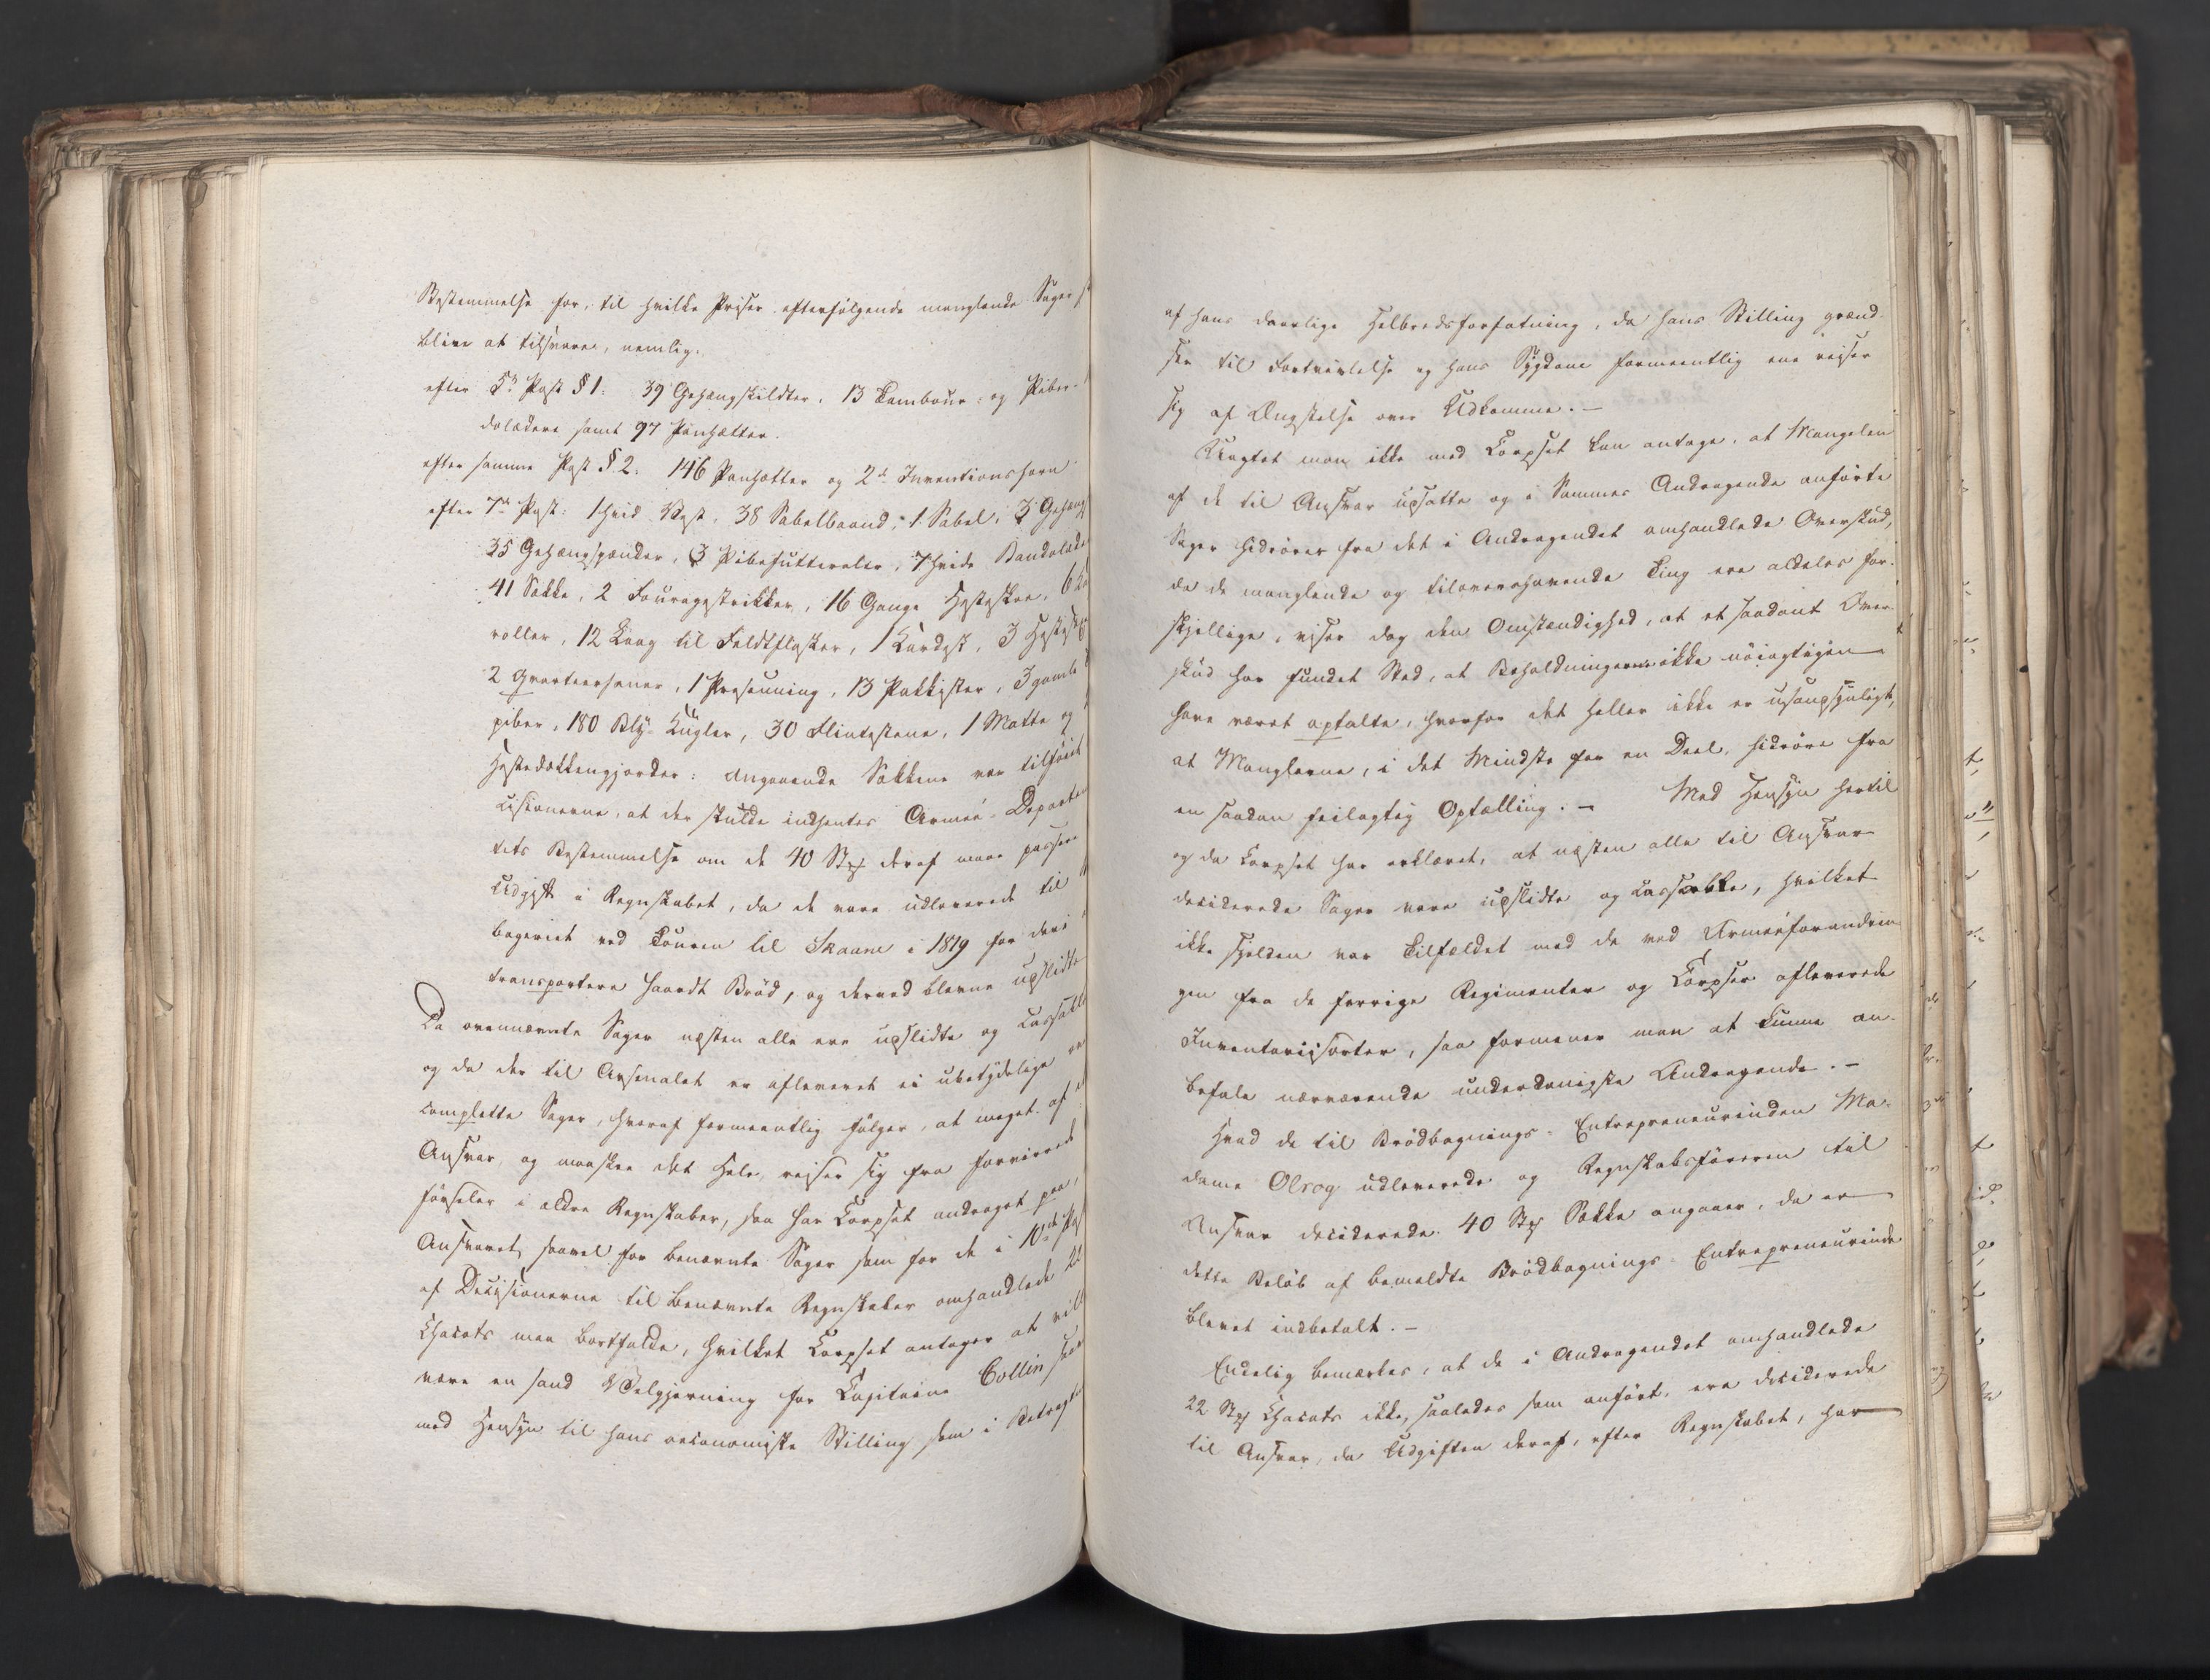 Bestemmelse for, til hvilke Priser efterfølgende manglende Sager
blive at tilsvare, nemlig:
efter 5te Post § 1: 39 Gehængskildter, 13 Tambour- og Piber-
samt 97 Panhætter.
efter samme Post § 2: 146 Panhætter og 2de Inventionshorn
efter 7de Post: 1 hvid Vest, 38 Sabelbaand, 1 Sabel, 3 Gehæng
35 Gehængspænder, 3 Pibefutteraler, 7 hvide
41 Sække, 2 Fouragestrikker, 16 Gange Hesteskoe, 6
12 Laag til Feldtflasker, 1 Kardest, 3
2 1 Presenning, 13 Pakkister, 3 gamle
piber, 180 Bly-Kugler, 30 Flintestene, 1 Matte og
Hestedækkengjorder: angaaende Sækkene var tilføiet
cisionerne, at der skulde indhentes Armee-Departem
tets Bestemmelse om de 40 Stk deraf maae passere
Udgift i Regnskabet, da de vare udleverede til
bageriet ved Touren til Skaane i 1819 for deri
transportere haardt Brød, og derved blevne upslidte
Da ovennævnte Sager næsten alle ere upslidte og Cassable
og da der til Arsenalet er afleveret ei ubetydelige
complette Sager, hvoraf formeentlig følger, at meget af
Ansvar, og maaskee det Hele, reiser sig fra forvirrede
førseler i ældre Regnskaber, saa har Corpset andraget paa,
Ansvaret, saavel for benævnte Sager som for de i 10de Post
af Decisionerne til benævnte Regnskaber omhandlede 22
Chacots maa bortfalde, hvilket Corpset antager at vill
være en sand Velgjerning for Capitaine Collin saa
med Hensyn til hans oeconomiske Stilling som i Betragtn
af hans daarlige Helbredsforfatning, da hans Stilling grænd-
ser til Fortvivlelse og hans Sygdom formeentlig ene reiser
sig af Ængstelse over Udkomme. –
Uagtet man ikke med Corpset kan antage, at Mangelen
af de til Ansvar upsatte og i Sammes Andragende anførte
Sager hidrører fra det i Andragendet omhandlede Overskud,
da de manglende og tiloversværende Ting ere aldeles for-
skjellige, viser dog den Omstændighed, at et saadant Over-
skud har fundet Sted, at Beholdningerne ikke nøiagtigen
have været optalte, hvorfor det heller ikke er usandsynligt,
at Manglerne, i det Mindste for en Deel, hidrøre fra
en saadan feilagtig Optælling. – Med Hensyn hertil
og da Corpset har erklæret, at næsten alle til Ansvar
deciderede Sager vare upslidte og Cassable, hvilket
ikke sjelden var Tilfældet med de ved Armeeforandrin-
gen fra de forrige Regimenter og Corpser afleverede
Inventariisorter, saa formener man at kunne an-
befale nærværende underdanigste Andragende. –
Hvad de til Brødbagnings-Entrepreneurinden Ma-
dame Olrog udleverede og Regnskabsføreren til
Ansvar deciderede 40 Stk Sække angaaer, da er
dette Beløb af bemeldte Brødbagnings-Entrepreneurinde
blevet indbetalt. –
Endelig bemærkes, at de i Andragendet omhandlede
22 Stk Chacots ikke, saaledes som anført, ere deciderede
til Ansvar, da Udgiften deraf, efter Regnskabet, har